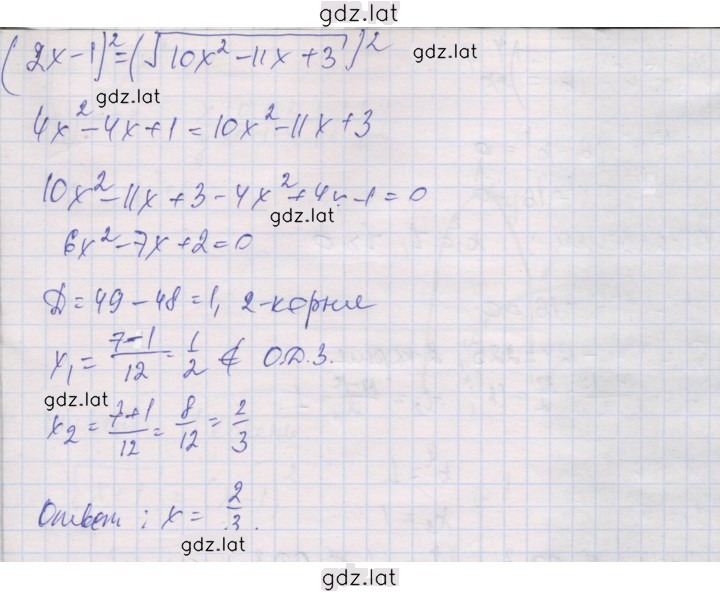 gdz.lat
(2x-1)²=(√10x²-11x+3)²
gdz.lat
gdz.lat
4x²-4x+1=10x²-11x+3
10x²-11x+3-4x²+4x-1=0
gdz.lat
6x²-7x+2=0
Д=49-48=1, 2-корня
x₁=7-1/12=1/2 ∉ О.Д.З.
gdz.lat
x₂=7+1/12=8/12=2/3
Ответ: x=2/3.
gdz.lat
gdz.lat